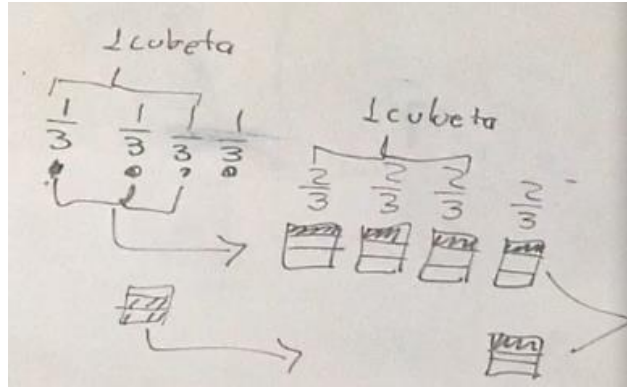 1 cubeta
1/3 1/3 1/3 1/3
1 cubeta
2/3 2/3 2/3 2/3